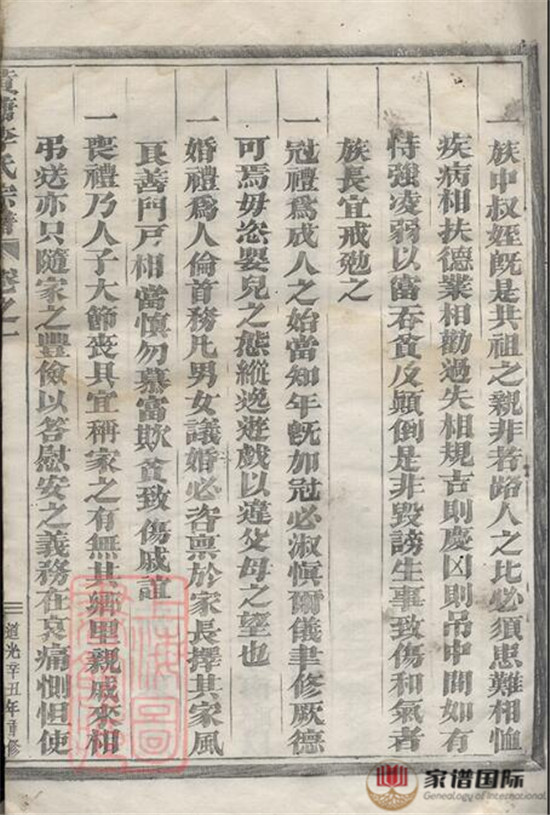 一族中叔姪既是共祖之親非若路人之比必須患難相恤
疾病相扶德業相勸過失相規吉則慶凶則吊中間如有
恃強凌弱以富吞貧反顛倒是非毀謗生事致傷和氣者
族長宜戒勉之
一冠禮爲成人之始當知年既加冠必淑慎爾儀聿修厥德
可焉毋恣嬰兒之態縱逸遊戲以違父母之望也
一婚禮爲人倫首務凡男女議婚必咨禀於家長擇其家風
良善門戶相當慎勿慕富欺貧致傷戚誼
一喪禮乃人子大節喪具宜稱家之有無其鄉里親戚來相
弔送亦只隨家之豐儉以答慰安之義務在哀痛惻怛使
黃塘李氏宗譜 卷之一
道光辛丑年重修
上海圖
家谱国际
Genealogy of International